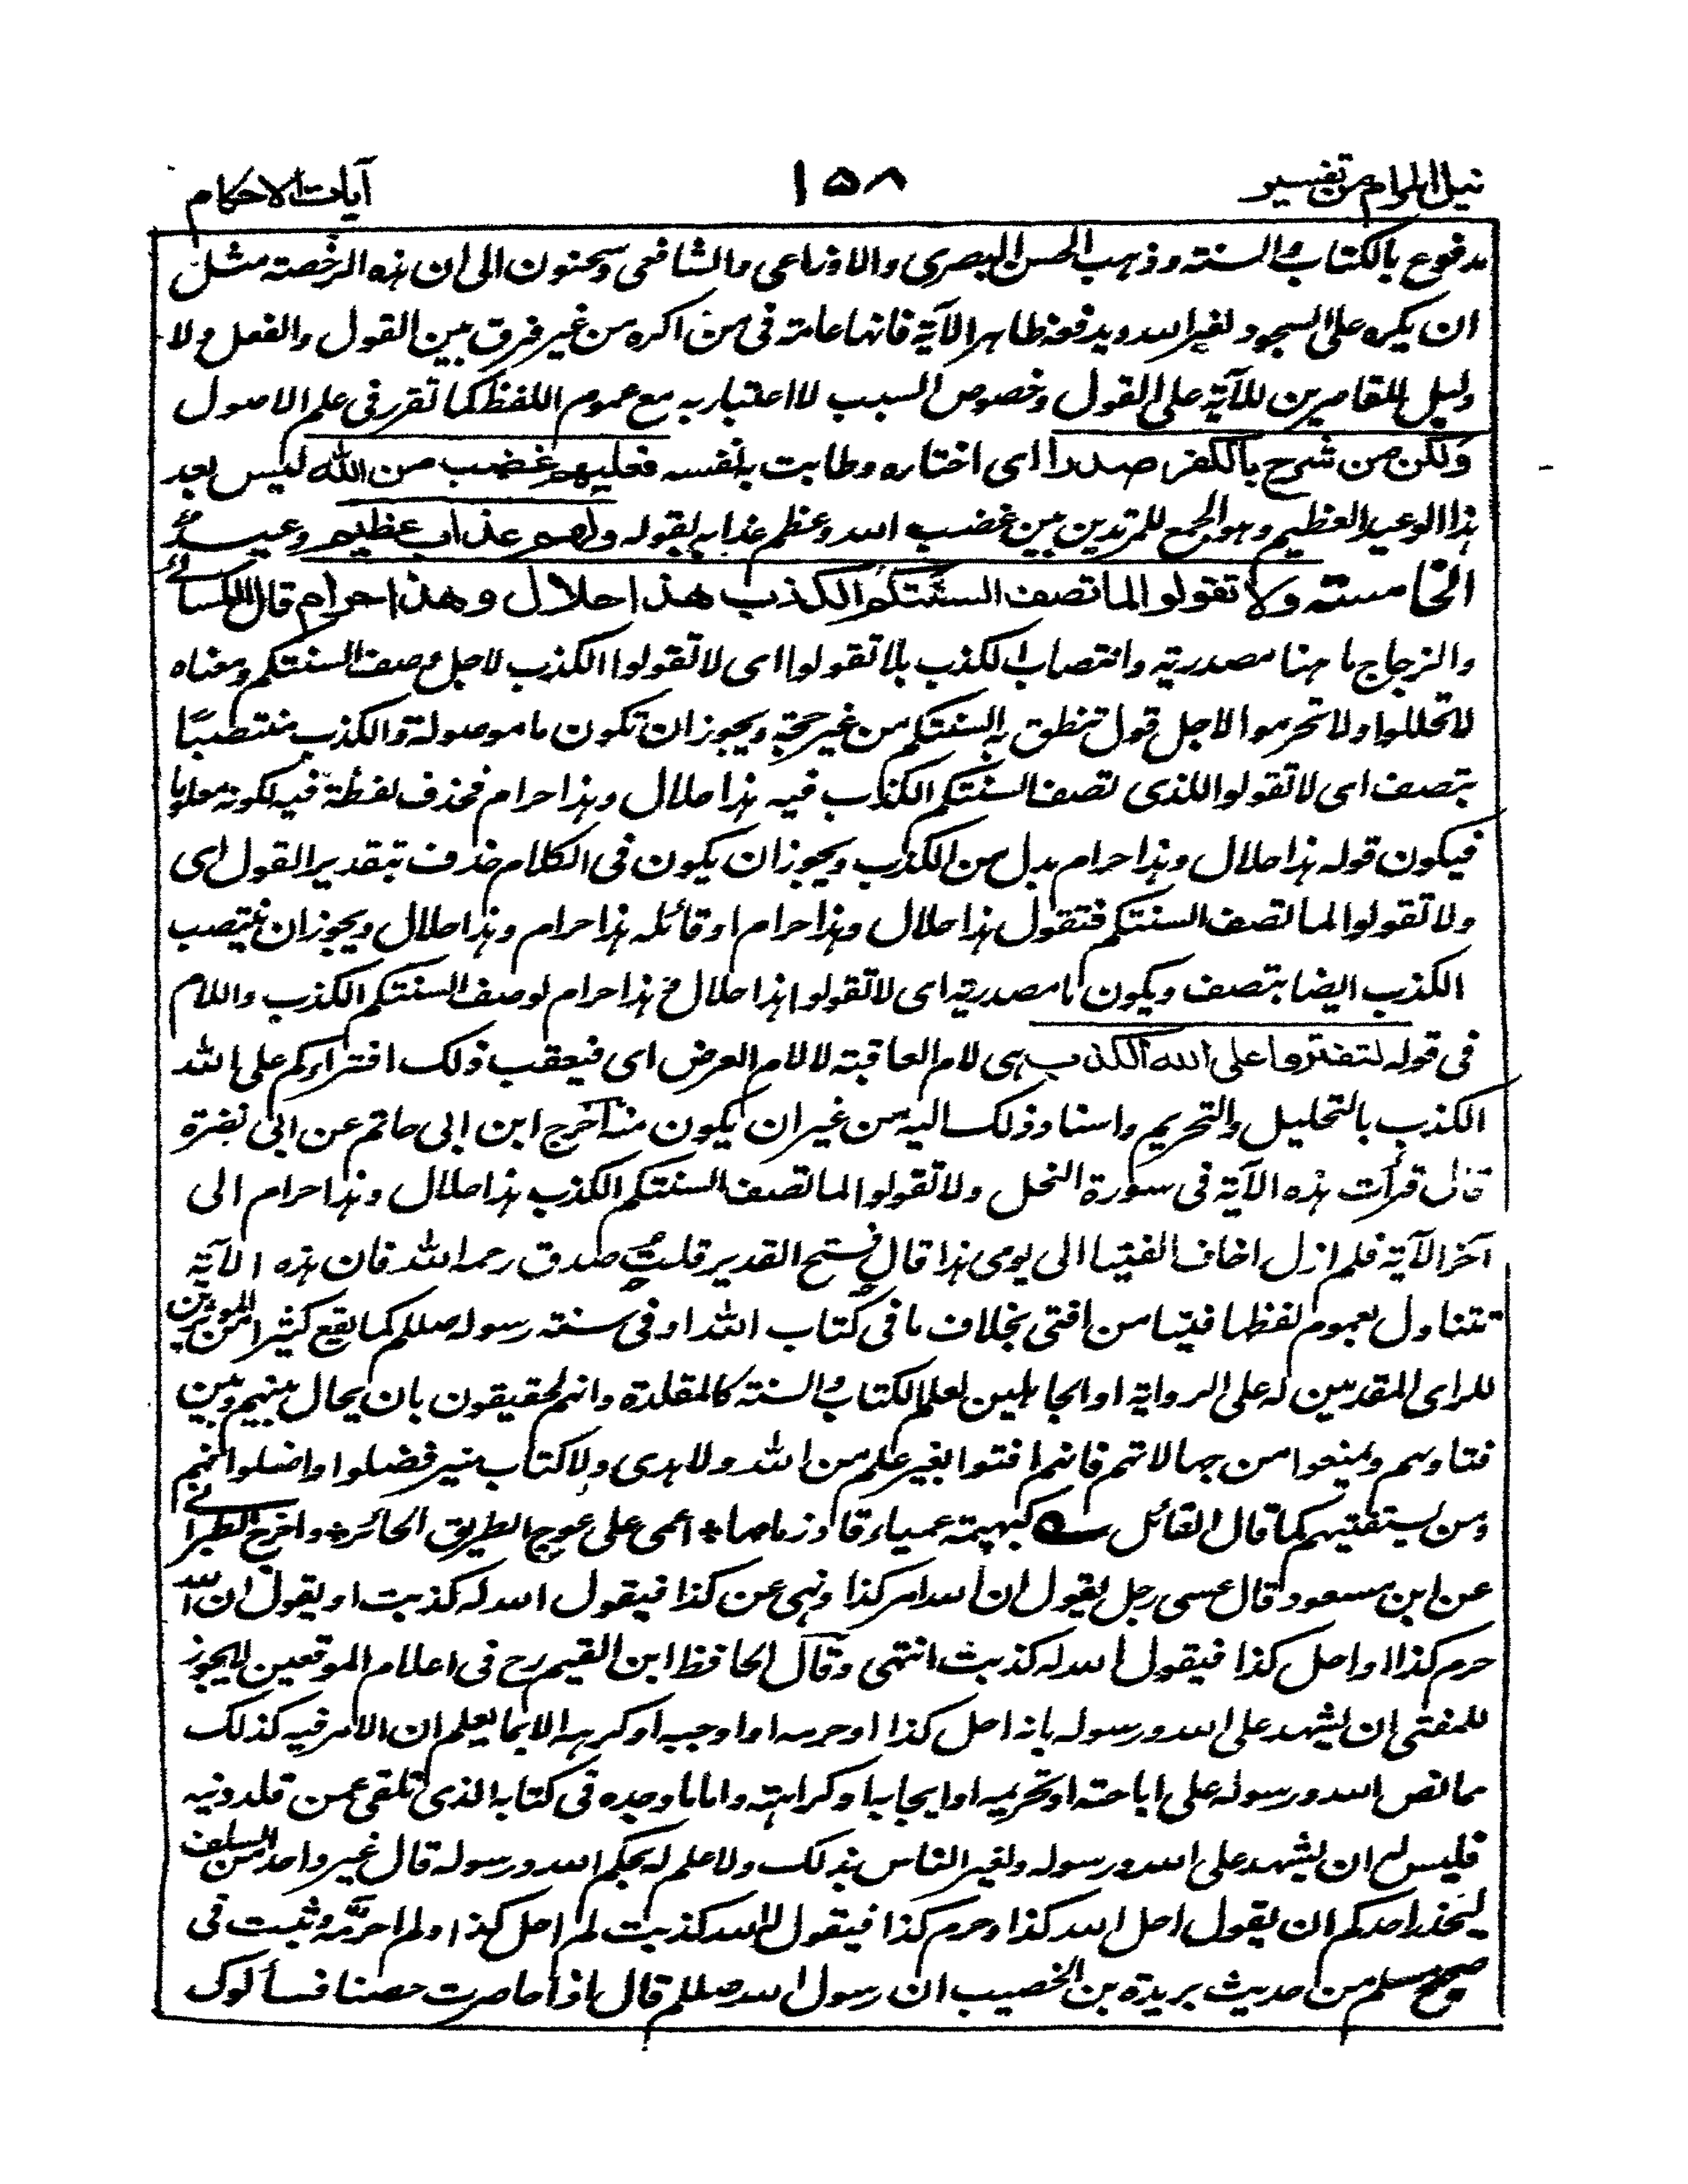 نيل المرام من تفسير
١٥٨
آيات الاحكام
مدفوع بالكتاب والسنة وذهب الحسن البصري والاوزاعي والشافعي وسحنون الى ان هذه الرخصة مثل
ان يكره على السجود لغير الله ويدفعه ظاهر الآية فانها عامة في من اكره من غير فرق بين القول والفعل ولا
دليل للقاصرين للآية على القول وخصوص السبب لا اعتبار به مع عموم اللفظ كما تقرر في علم الاصول
ولكن من شرح بالكفر صدرا اى اختاره وطابت به نفسه فعليهم غضب من الله ليس بعد
هذا الوعيد العظيم وهو الجمع للمرتدين بين غضب الله وعظم عذابه لقوله ولهم عذاب عظيم وعيد
الخامسة ولا تقولوا لما تصف السنتكم الكذب هذا حلال وهذا حرام قال الكسائي
والزجاج ما هنا مصدرية وانتصاب الكذب بلا تقولوا اى لا تقولوا الكذب لاجل وصف السنتكم ومعناه
لا تحللوا ولا تحرموا لاجل قول تنطق به السنتكم من غير حجة ويجوز ان تكون ما موصولة والكذب منتصبا
بتصف اى لا تقولوا للذى تصف السنتكم الكذب فيه هذا حلال وهذا حرام فحذف لفظة فيه لكونه معلوما
فيكون قوله هذا حلال وهذا حرام بدل من الكذب ويجوز ان يكون في الكلام حذف بتقدير القول اى
ولا تقولوا لما تصف السنتكم فتقول هذا حلال وهذا حرام او قائله هذا حرام وهذا حلال ويجوز ان ينتصب
الكذب ايضا بتصف ويكون ما مصدرية اى لا تقولوا هذا حلال وهذا حرام لوصف السنتكم الكذب واللام
في قوله لتفتروا على الله الكذب هى لام العاقبة لا لام العرض اى فيعقب ذلك افتراؤكم على الله
الكذب بالتحليل والتحريم واسناد ذلك اليه من غير ان يكون منه اخرج ابن ابي حاتم عن ابي نضرة
قال قرأت هذه الآية في سورة النحل ولا تقولوا لما تصف السنتكم الكذب هذا حلال وهذا حرام الى
آخر الآية فلم ازل اخاف الفتيا الى يومي هذا قال في فتح القدير قلت صدق رحمه الله فان هذه الآية
تتناول بعموم لفظها فتيا من افتى بخلاف ما في كتاب الله او في سنة رسوله صللم كما يقع كثيرا من المؤثرين
للراى المقدمين له على الرواية او الجاهلين لعلم الكتاب والسنة كالمقلدة وانهم لحقيقون بان يحال بينهم وبين
فتاويهم ويمنعوا من جهالاتهم فانهم افتوا بغير علم من الله ولا هدى ولا كتاب منير فضلوا واضلوا فهم
ومن يستفتيهم كما قال القائل كبهيمة عمياء قاد زمامها * اعمى على عوج الطريق الحائر * واخرج الطبراني
عن ابن مسعود قال عسى رجل يقول ان الله امر كذا ونهى عن كذا فيقول الله له كذبت او يقول ان الله
حرم كذا او احل كذا فيقول الله له كذبت انتهى وقال الحافظ ابن القيم رح في اعلام الموقعين لا يجوز
للمفتي ان يشهد على الله ورسوله بانه احل كذا او حرمه او اوجبه او كرهه الا بما يعلم ان الامر فيه كذلك
مما نص الله ورسوله على اباحته او تحريمه او ايجابه او كراهته واما ما وجده في كتابه الذي تلقى عمن قلد دينه
فليس له ان يشهد على الله ورسوله ولغير الناس بذلك ولا علم له بحكم الله ورسوله قال غير واحد من السلف
ليحذر احدكم ان يقول احل الله كذا وحرم كذا فيقول الله كذبت لم احل كذا ولم احرمه وثبت في
صحيح مسلم من حديث بريدة بن الخصيب ان رسول الله صللم قال اذا حاصرت حصنا فسألوك